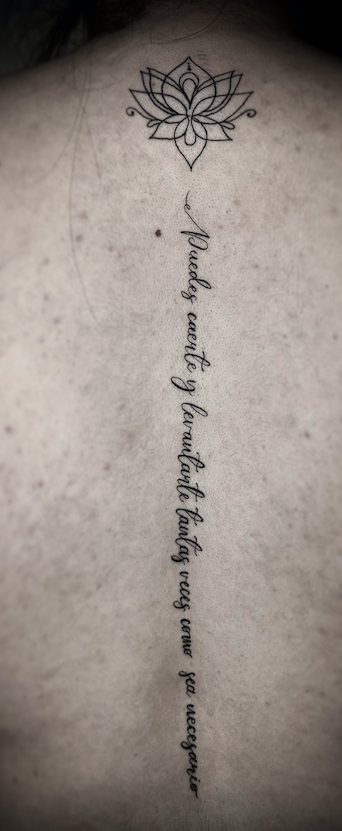 Puedes caerte y levantarte tantas veces como sea necesario